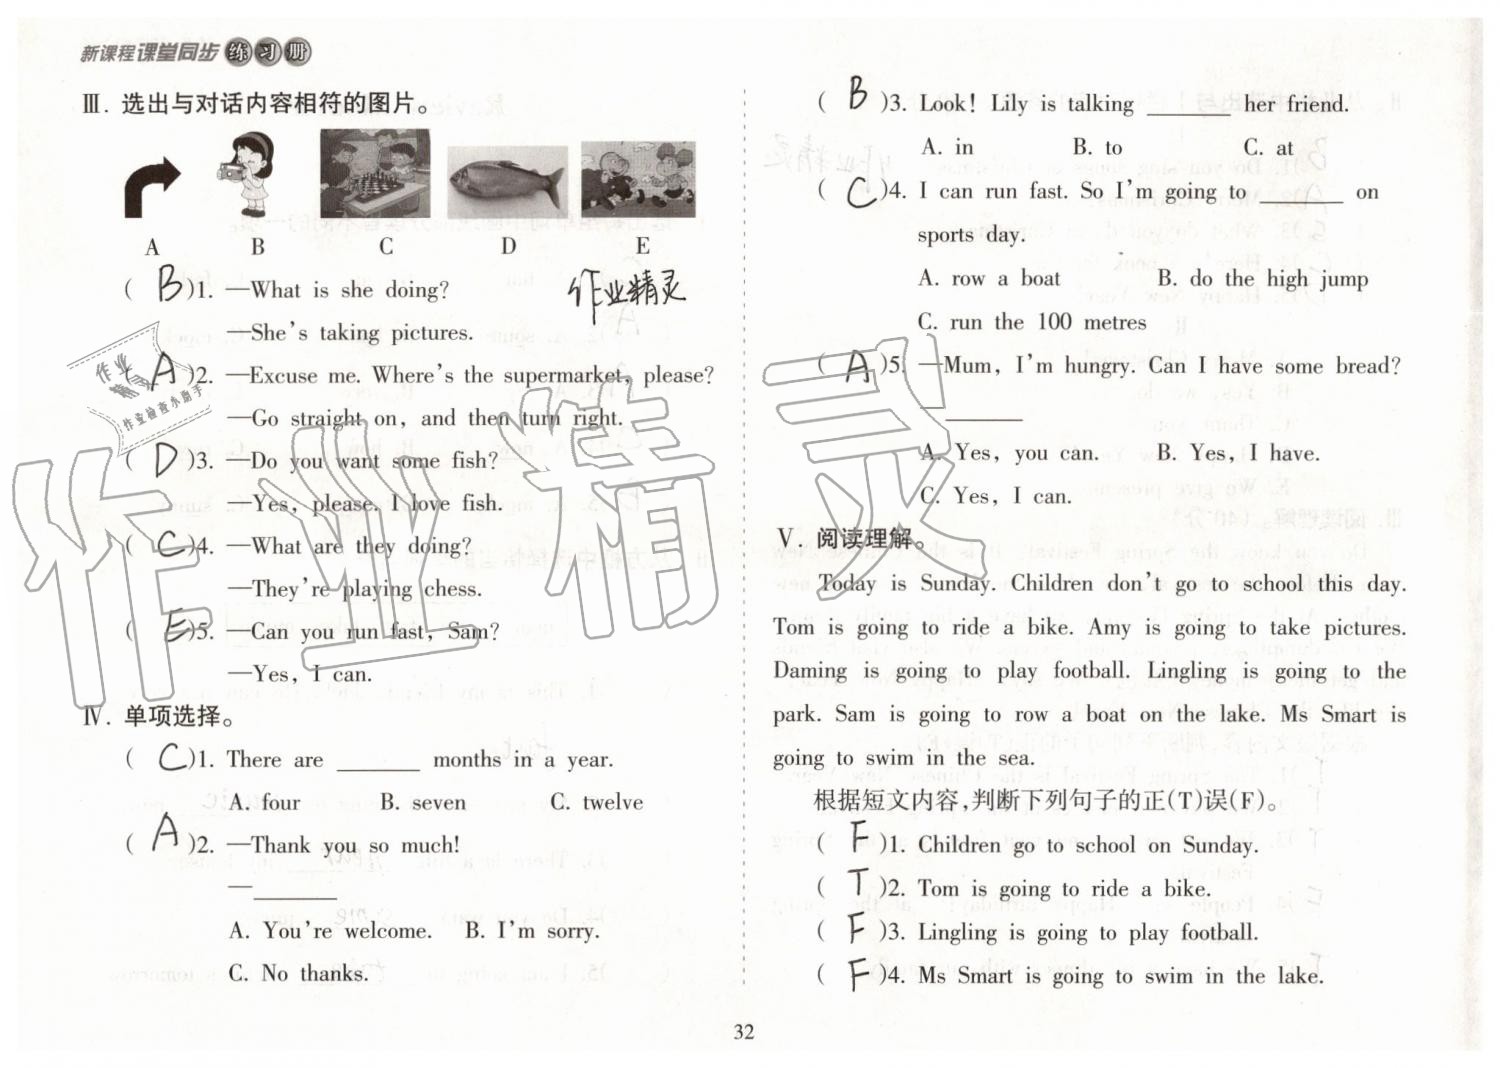 新课程课堂同步练习册
Ⅲ. 选出与对话内容相符的图片。
A B C D E
( B )1. —What is she doing?
作业精灵
—She's taking pictures.
( A )2. —Excuse me. Where's the supermarket, please?
—Go straight on, and then turn right.
( D )3. —Do you want some fish?
—Yes, please. I love fish.
( C )4. —What are they doing?
—They're playing chess.
( E )5. —Can you run fast, Sam?
—Yes, I can.
Ⅳ. 单项选择。
( C )1. There are ______ months in a year.
A. four B. seven C. twelve
( A )2. —Thank you so much!
—______
A. You're welcome. B. I'm sorry.
C. No thanks.
( B )3. Look! Lily is talking ______ her friend.
A. in B. to C. at
( C )4. I can run fast. So I'm going to ______ on
sports day.
A. row a boat B. do the high jump
C. run the 100 metres
( A )5. —Mum, I'm hungry. Can I have some bread?
—______
A. Yes, you can. B. Yes, I have.
C. Yes, I can.
Ⅴ. 阅读理解。
Today is Sunday. Children don't go to school this day.
Tom is going to ride a bike. Amy is going to take pictures.
Daming is going to play football. Lingling is going to the
park. Sam is going to row a boat on the lake. Ms Smart is
going to swim in the sea.
根据短文内容,判断下列句子的正(T)误(F)。
( F )1. Children go to school on Sunday.
( T )2. Tom is going to ride a bike.
( F )3. Lingling is going to play football.
( F )4. Ms Smart is going to swim in the lake.
32
作业精灵
作业精灵
作业检查小助手